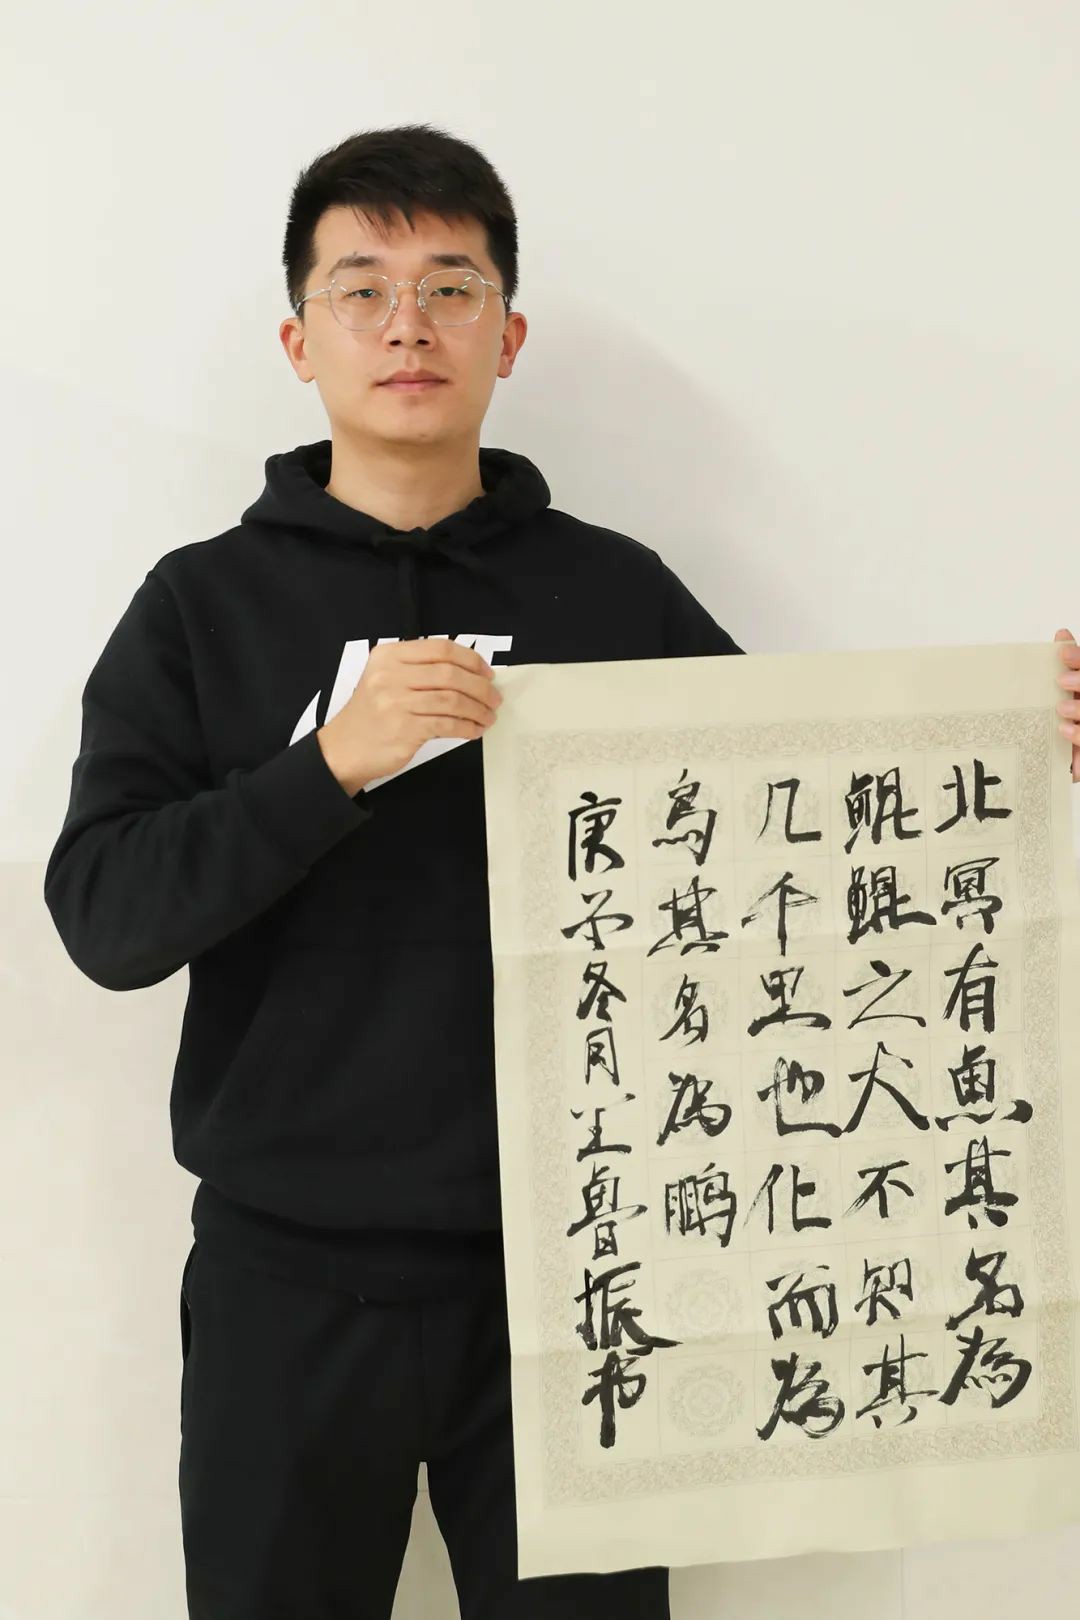 NIKE
北冥有鱼其名為
鲲鲲之大不知其
几千里也化而為
鸟其名為鹏
庚子冬月王鲁振书